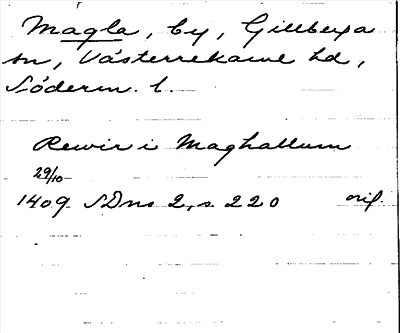 Magla, by, Gillberga
sn, Västerrekarne hd,
Söderm. l.
Rewir i Maghallum
29/10
1409 SDns 2, s 220 orig.